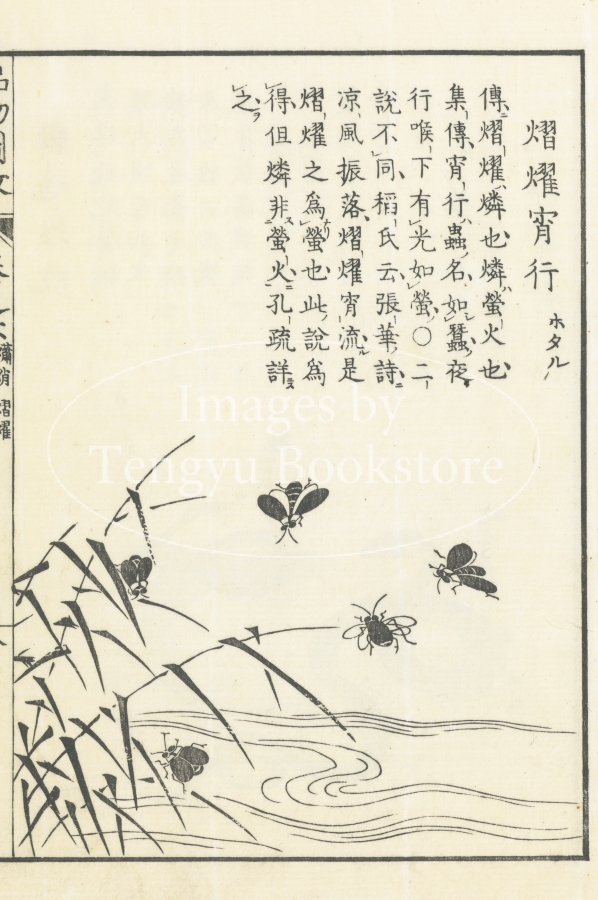 熠燿宵行
ホタル
傳熠燿燐也燐螢火也
集傳宵行蟲名如蠶夜
行喉下有光如螢〇二
說不同稻氏云張華詩
凉風振落熠燿宵流是
熠燿之爲螢也此說爲
得但燐非螢火孔疏詳
之
蠨蛸 熠燿
Images by
Tengyu Bookstore